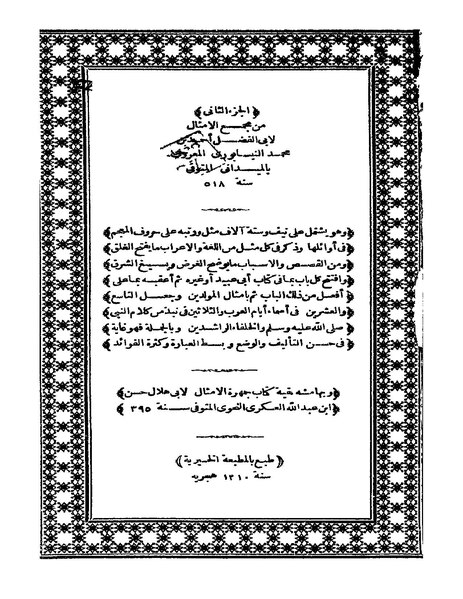 ﴿الجزء الثانى﴾
من مجمع الامثال
لابى الفضل أحمد بن
محمد النيسابورى المعروف
بالميدانى المتوفى
سنة ٥١٨
﴿وهو يشتمل على نيف وستة آلاف مثل ورتبه على حروف المعجم﴾
﴿فى أوائلها وذكر فى كل مثل من اللغة والاعراب ما يفتح الغلق﴾
﴿ومن القصص والاسباب ما يوضح الغرض ويسيغ الشرق﴾
﴿وافتتح كل باب بما فى كتاب أبى عبيد أو غيره ثم أعقبه بما على﴾
﴿أفعل من ذلك الباب ثم بامثال المولدين وجعل التاسع﴾
﴿والعشرين فى أسماء أيام العرب والثلاثين فى نبذة من كلام النبى﴾
﴿صلى الله عليه وسلم والخلفاء الراشدين وبالجملة فهو غاية﴾
﴿فى حسن التأليف والوضع وبسط العبارة وكثرة الفوائد﴾
﴿وبهامشه بقية كتاب جمهرة الامثال لابى هلال حسن﴾
﴿ابن عبد الله العسكرى النحوى المتوفى سنة ٣٩٥﴾
﴿طبع بالمطبعة الخيرية﴾
سنة ١٣١٠ هجريه